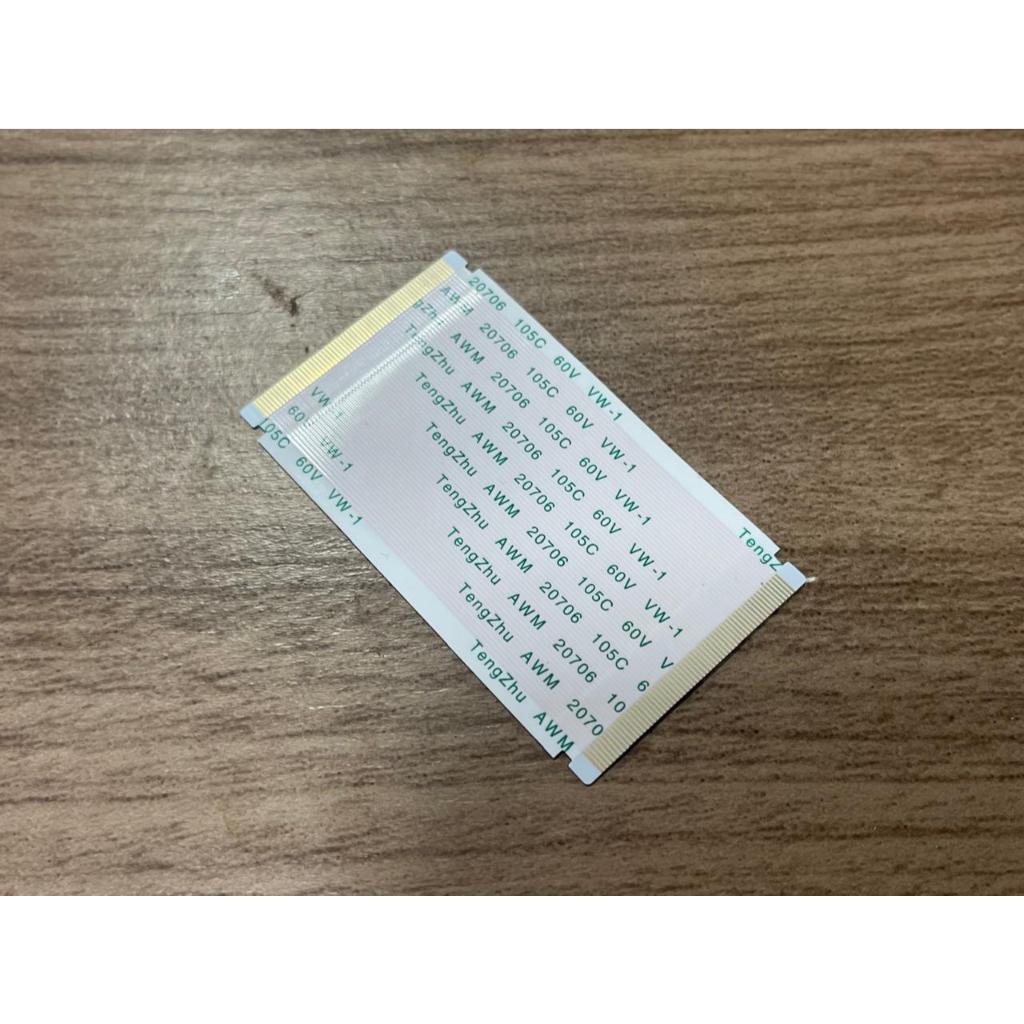 20706 105C 60V VW-1 TengZ
AWM 20706 105C 60V VW-1
gZhu AWM 20706 105C 60V VW-1
TengZhu AWM 20706 105C 60V VW-1
TengZhu AWM 20706 105C 60V VW-1
TengZhu AWM 20706 105C 60V V
TengZhu AWM 20706 105C 6
VW TengZhu AWM 20706 10
60V VW-1 TengZhu AWM 2070
105C 60V VW-1 TengZhu AWM